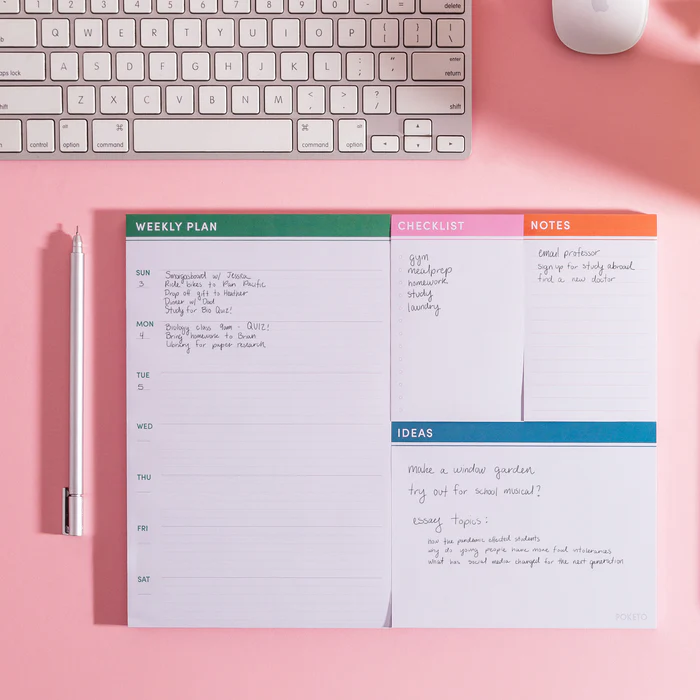 delete
Q W E R T Y U I O P { [ } ] | \
caps lock A S D F G H J K L : ; " ' enter return
shift Z X C V B N M < , > . ? / shift
control alt option ⌘ command ⌘ command alt option
WEEKLY PLAN
SUN
3
Smorgasboard w/ Jessica
Ride bikes to Pan Pacific
Drop off gift to Heather
Dinner w/ Dad
Study for Bio Quiz!
MON
4
Biology class 9am - QUIZ!
Bring homework to Brian
Library for paper research
TUE
5
WED
THU
FRI
SAT
CHECKLIST
gym
mealprep
homework
study
laundry
NOTES
email professor
sign up for study abroad
find a new doctor
IDEAS
make a window garden
try out for school musical?
essay topics:
how the pandemic affected students
why do young people have more food intolerances
what has social media changed for the next generation
POKETO